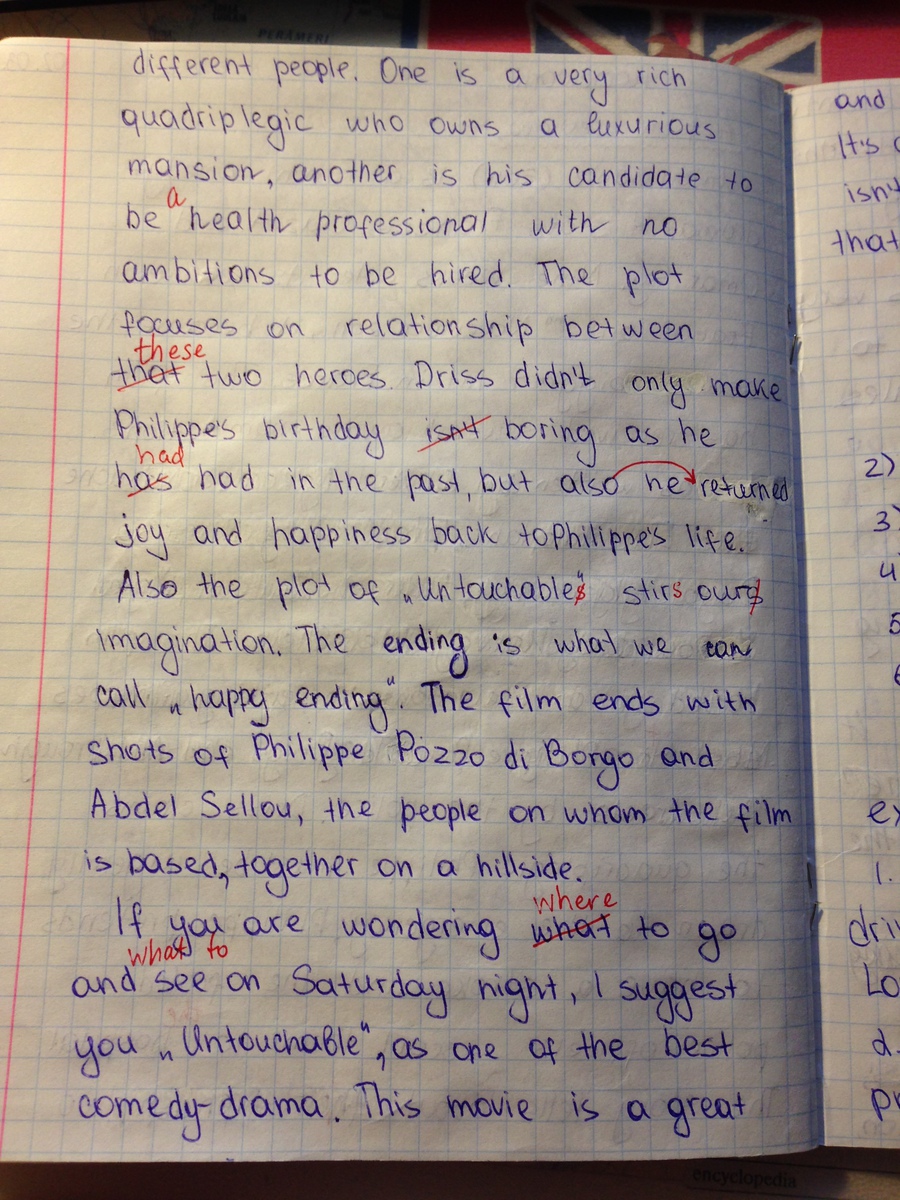 PERÄMERI
different people. One is a very rich
quadriplegic who owns a luxurious
mansion, another is his candidate to
a
be health professional with no
ambitions to be hired. The plot
focuses on relationship between
these
that two heroes. Driss didn't only make
Philippe's birthday isn't boring as he
had
has had in the past, but also he returned
joy and happiness back to Philippe's life.
Also the plot of „Untouchables" stirs ours
imagination. The ending is what we can
call „happy ending". The film ends with
shots of Philippe Pozzo di Borgo and
Abdel Sellou, the people on whom the film
is based, together on a hillside.
where
If you are wondering what to go
what to
and see on Saturday night, I suggest
you „Untouchable", as one of the best
comedy-drama. This movie is a great
and
It's
isn't
that
2)
3)
4
5
6
ex
1.
driv
Lo
d.
pr
encyclopedia